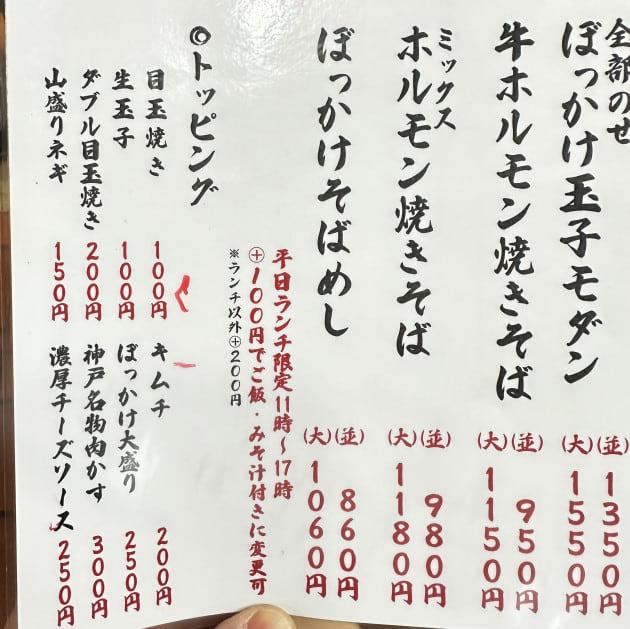 全部のせ
ぼっかけ玉子モダン
(並)1350円
(大)1550円
牛ホルモン焼きそば
(並)950円
(大)1150円
ミックス
ホルモン焼きそば
(並)980円
(大)1180円
ぼっかけそばめし
(並)860円
(大)1060円
平日ランチ限定11時〜17時
⊕100円でご飯・みそ汁付きに変更可
※ランチ以外⊕200円
◎トッピング
目玉焼き 100円
生玉子 100円
ダブル目玉焼き 200円
山盛りネギ 150円
キムチ 200円
ぼっかけ大盛り 250円
神戸名物肉かす 300円
濃厚チーズソース 250円